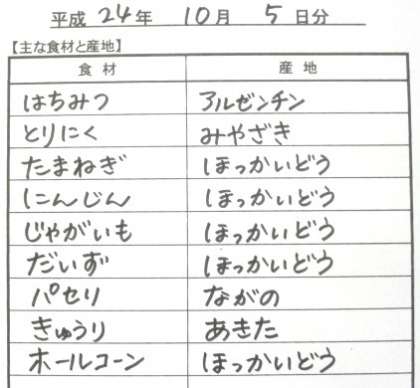 平成 24年 10月 5日分
【主な食材と産地】
食材 産地
はちみつ アルゼンチン
とりにく みやざき
たまねぎ ほっかいどう
にんじん ほっかいどう
じゃがいも ほっかいどう
だいず ほっかいどう
パセリ ながの
きゅうり あきた
ホールコーン ほっかいどう